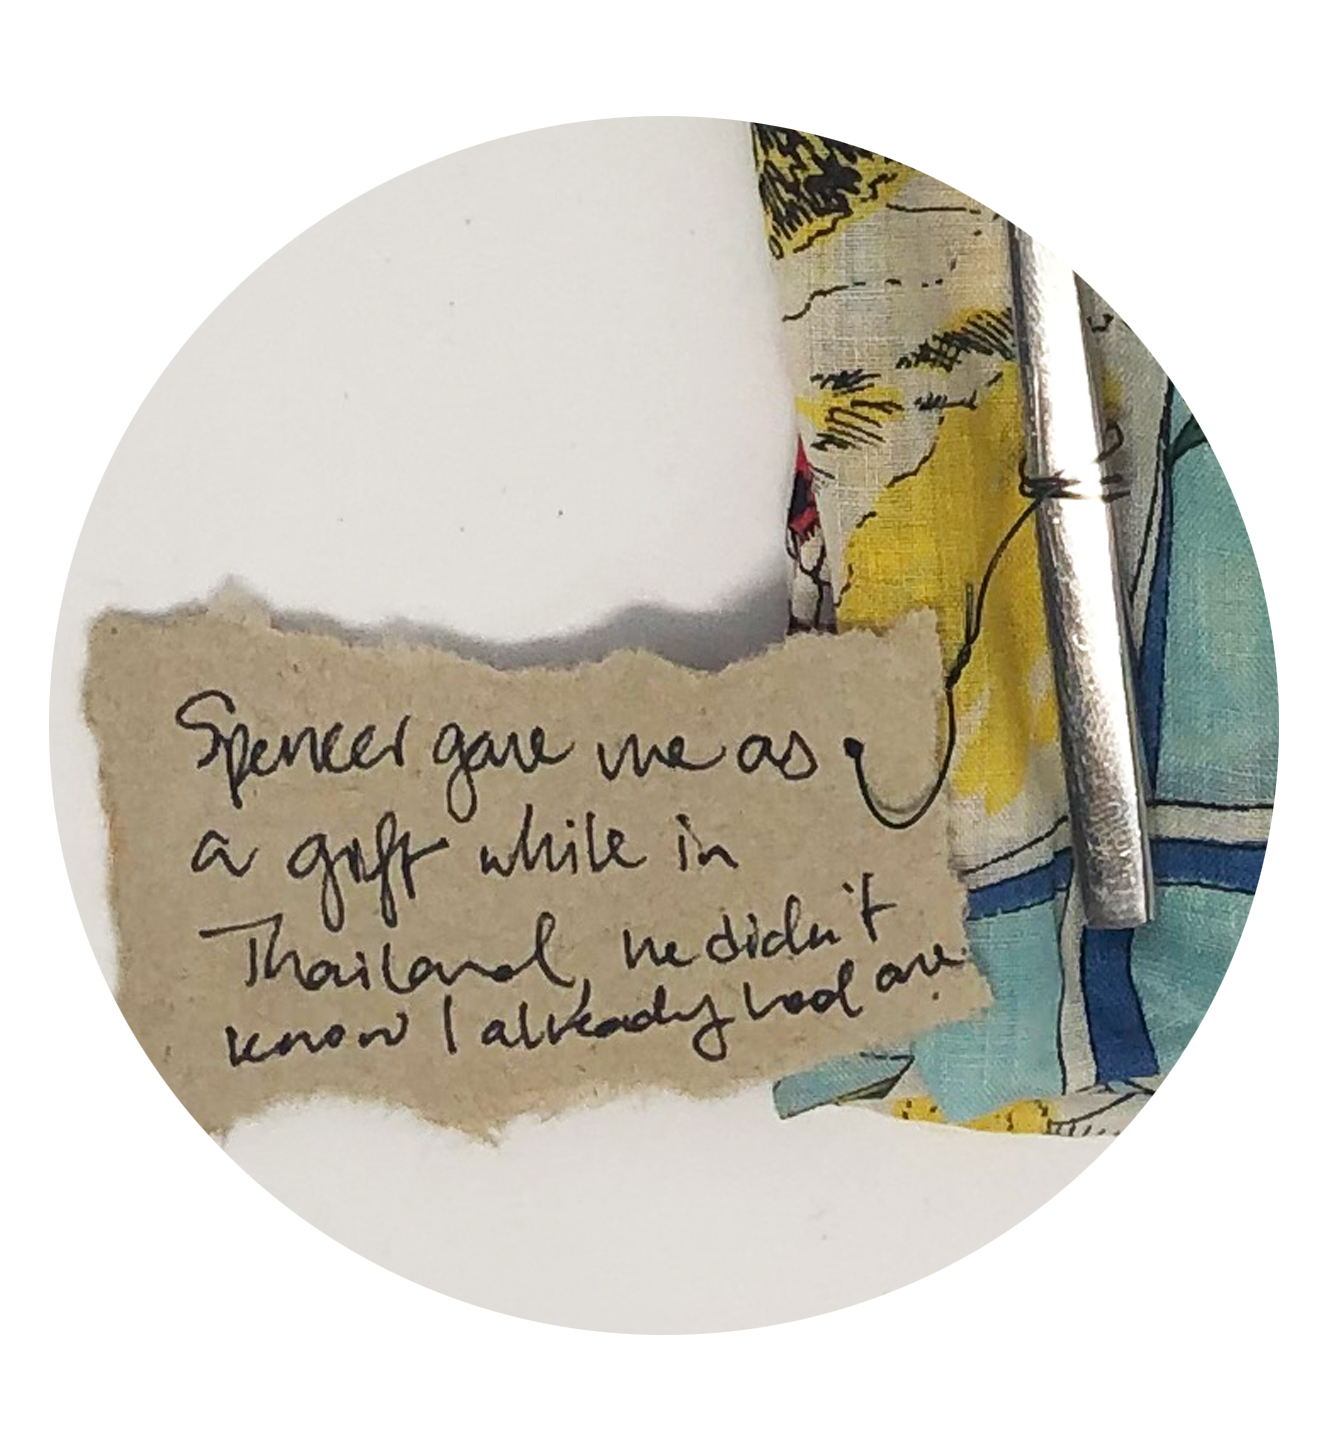 Spencer gave me as
a gift while in
Thailand, he didn't
know I already had one.